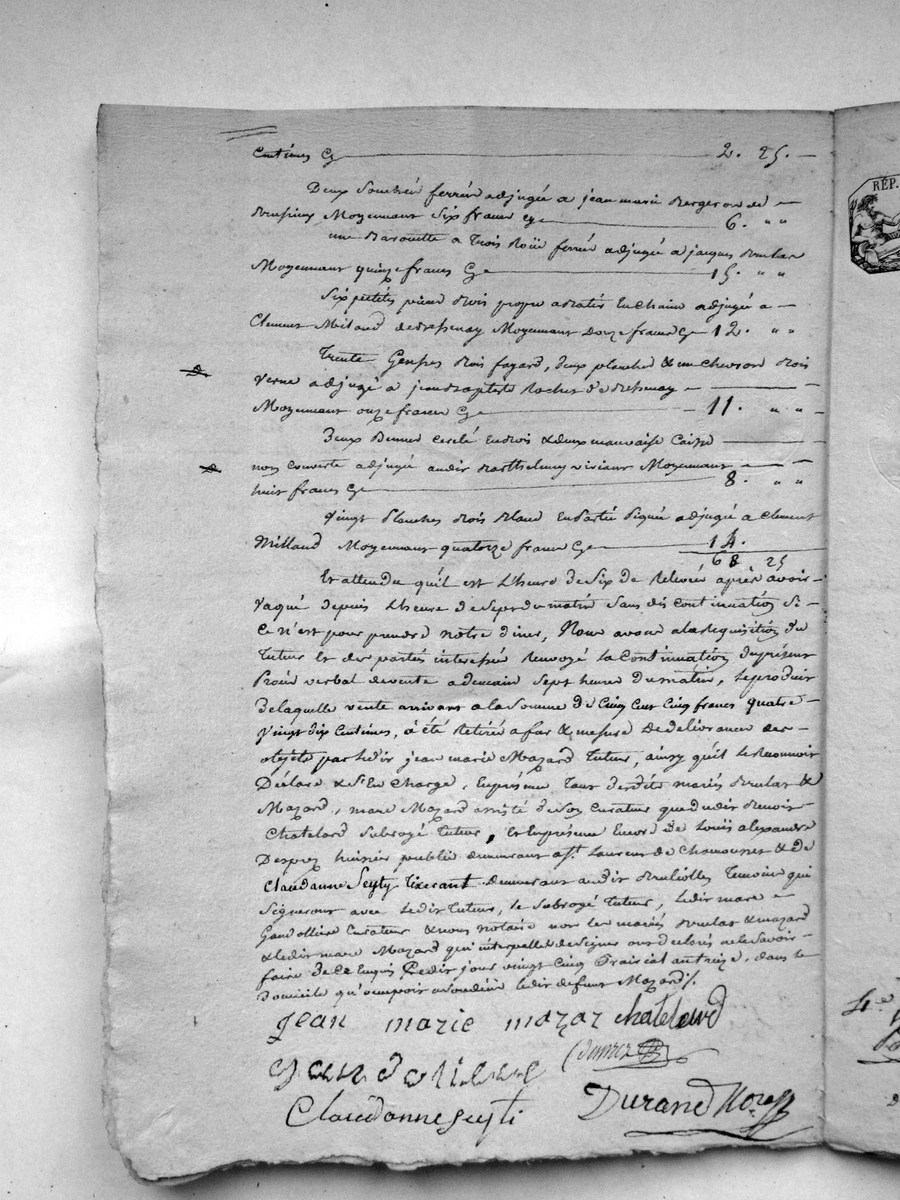 Centimes Cy 2. 25.
Deux ferrées adjugée a jean marie Bergeron de
Moyennant six francs Cy 6. " "
une Barouette a trois Roüe ferrée adjugée a jacques Brulas
Moyennant quinze francs Cy 15. " "
Six petites pieces Bois propre a Batir En chaine adjugée a
Clement Milaud de Bessenay Moyennant Douze francs Cy 12. " "
Trente Bois fayard, deux planches & un chevron Bois
Verne adjugé a jean Baptiste Rochet de Bessenay
Moyennant onze francs Cy 11. " "
Deux Bennes cerclé En Bois & deux mauvaise Caisse
non couverte adjugée audit Barthelemy viviant Moyennant
huit francs Cy 8. " "
Vingt planches Bois Blanc En partie piquée adjugée a Clement
Millaud Moyennant quatorze francs Cy 14.
68 25
Et attendu quil est L'heure de Six de Relevée après avoir
Vaqué depuis L'heure de Sept du matin Sans discontinuation Si
Ce n'est pour prendre notre diner, Nous avons a la Requisition du
Tuteur Et des parties interessée Renvoyé la Continuation du present
Procès verbal de vente a demain Sept heures du matin, Le produit
de laquelle vente arrivant a la Somme de Cinq Cent Cinq francs quatre
Vingt dix Centimes, a été Retirée a fur & mesure de de delivrance des
objets par ledit jean marie Mazard Tuteur, ainsy quil le Reconnoit
Déclare & s'En Charge, En présence Tant desdits mariés Brulas &
Mazard, marc Mazard assisté de Son Curateur que dudit Benoit
Chatelard Subrogé Tuteur, Et En présence Encore de Loüis alexandre
Desprez huissier public demeurant a St. Laurent de Chamousset & de
Claudanne Seyty Tixerant demeurant audit Brullioles Temoins qui
Signeront avec Ledit Tuteur, le Subrogé Tuteur, Ledit marc
Gandollière Curateur & nous notaire non les mariés Brulas & mazard
& ledit marc Mazard qui interpellés de Signer ont declarés ne le Savoir
faire de Ce Enquis Ledit jour vingt Cinq Prairial an treize, dans le
Domicile qu'occupoit a Soudit ledit defunt Mazard /.
jean marie mazar chatelard
Claudanne seyti Durand Nore
RÉP.